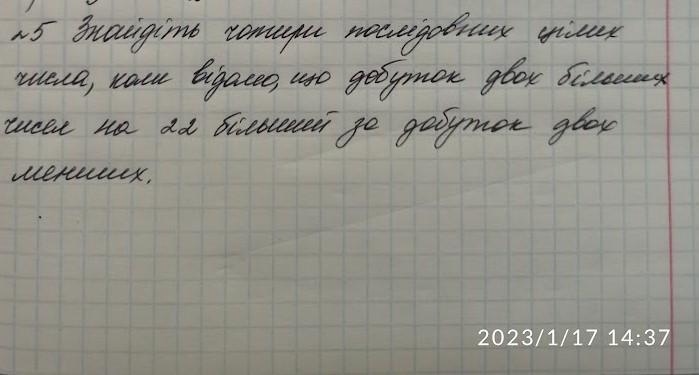 №5 Знайдіть чотири послідовних цілих
числа, коли відомо, що добуток двох більших
чисел на 22 більший за добуток двох
менших.
2023/1/17 14:37